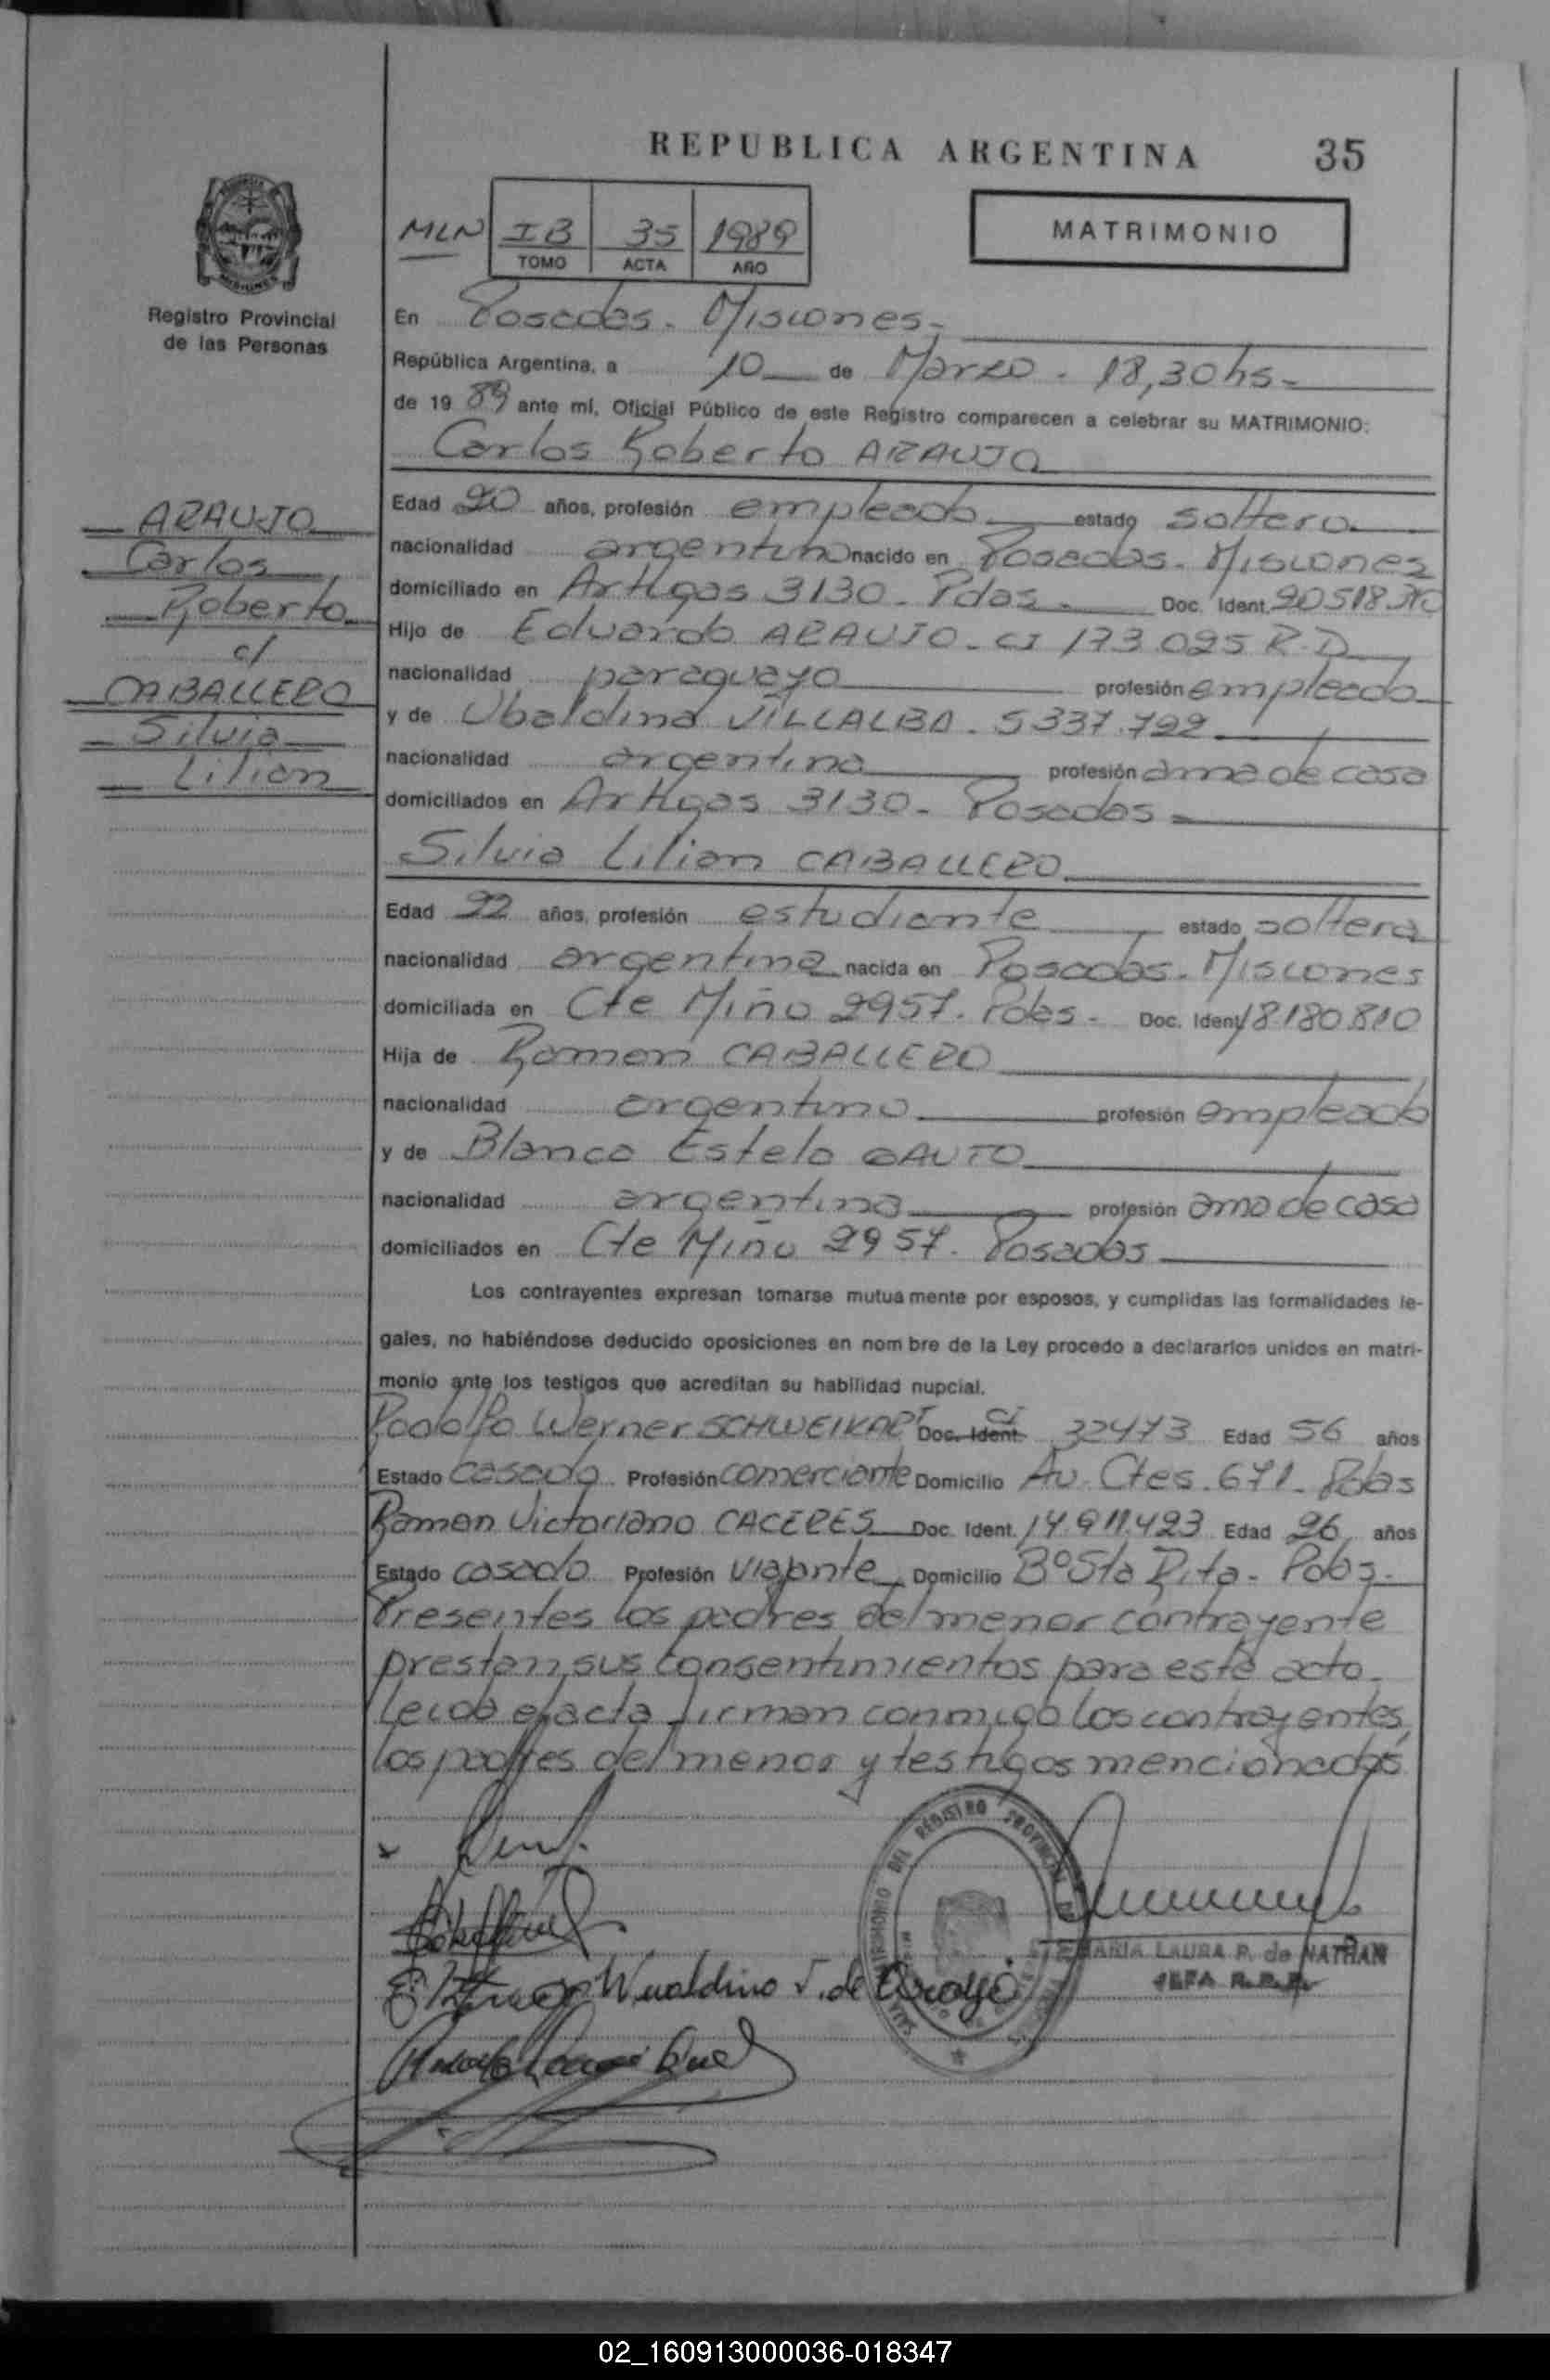 REPUBLICA ARGENTINA 35
MLN IB 35 1989
TOMO ACTA AÑO
MATRIMONIO
Registro Provincial
de las Personas
En Posadas - Misiones -
República Argentina, a 10 de Marzo - 18,30 hs -
de 19 89 ante mí, Oficial Público de este Registro comparecen a celebrar su MATRIMONIO:
Carlos Roberto ARAUJO
ARAUJO
Carlos
Roberto
c/
CABALLERO
Silvia
Lilian
Edad 20 años, profesión empleado estado soltero
nacionalidad argentino nacido en Posadas - Misiones
domiciliado en Artigas 3130 - Pdas - Doc. Ident. 20518310
Hijo de Eduardo ARAUJO - CI 173.025 R.D
nacionalidad paraguayo profesión empleado
y de Ubaldina VILLALBA - 5337.722
nacionalidad argentina profesión ama de casa
domiciliados en Artigas 3130 - Posadas -
Silvia Lilian CABALLERO
Edad 22 años, profesión estudiante estado soltera
nacionalidad argentina nacida en Posadas - Misiones
domiciliada en Cte Miño 2957 - Pdas - Doc. Ident 18180810
Hija de Ramon CABALLERO
nacionalidad argentino profesión empleado
y de Blanca Estela GAUTO
nacionalidad argentina profesión ama de casa
domiciliados en Cte Miño 2957 - Posadas
Los contrayentes expresan tomarse mutuamente por esposos, y cumplidas las formalidades le-
gales, no habiéndose deducido oposiciones en nombre de la Ley procedo a declararlos unidos en matri-
monio ante los testigos que acreditan su habilidad nupcial.
Rodolfo Werner SCHWEIKART Doc. Ident. CI 32473 Edad 56 años
Estado casado Profesión comerciante Domicilio Av. Ctes. 671 - Pdas
Ramon Victoriano CACERES Doc. Ident. 14.911.423 Edad 26 años
Estado casado Profesión viajante Domicilio Bº Sta Rita - Pdas -
Presentes los padres del menor contrayente
prestan sus consentimientos para este acto -
Leida el acta firman conmigo los contrayentes,
los padres del menor y testigos mencionados
DEL REGISTRO PROVINCIAL
MARIA LAURA P. de NATHAN
JEFA R.P.P.
Wualdino V. de Araujo
02_160913000036-018347